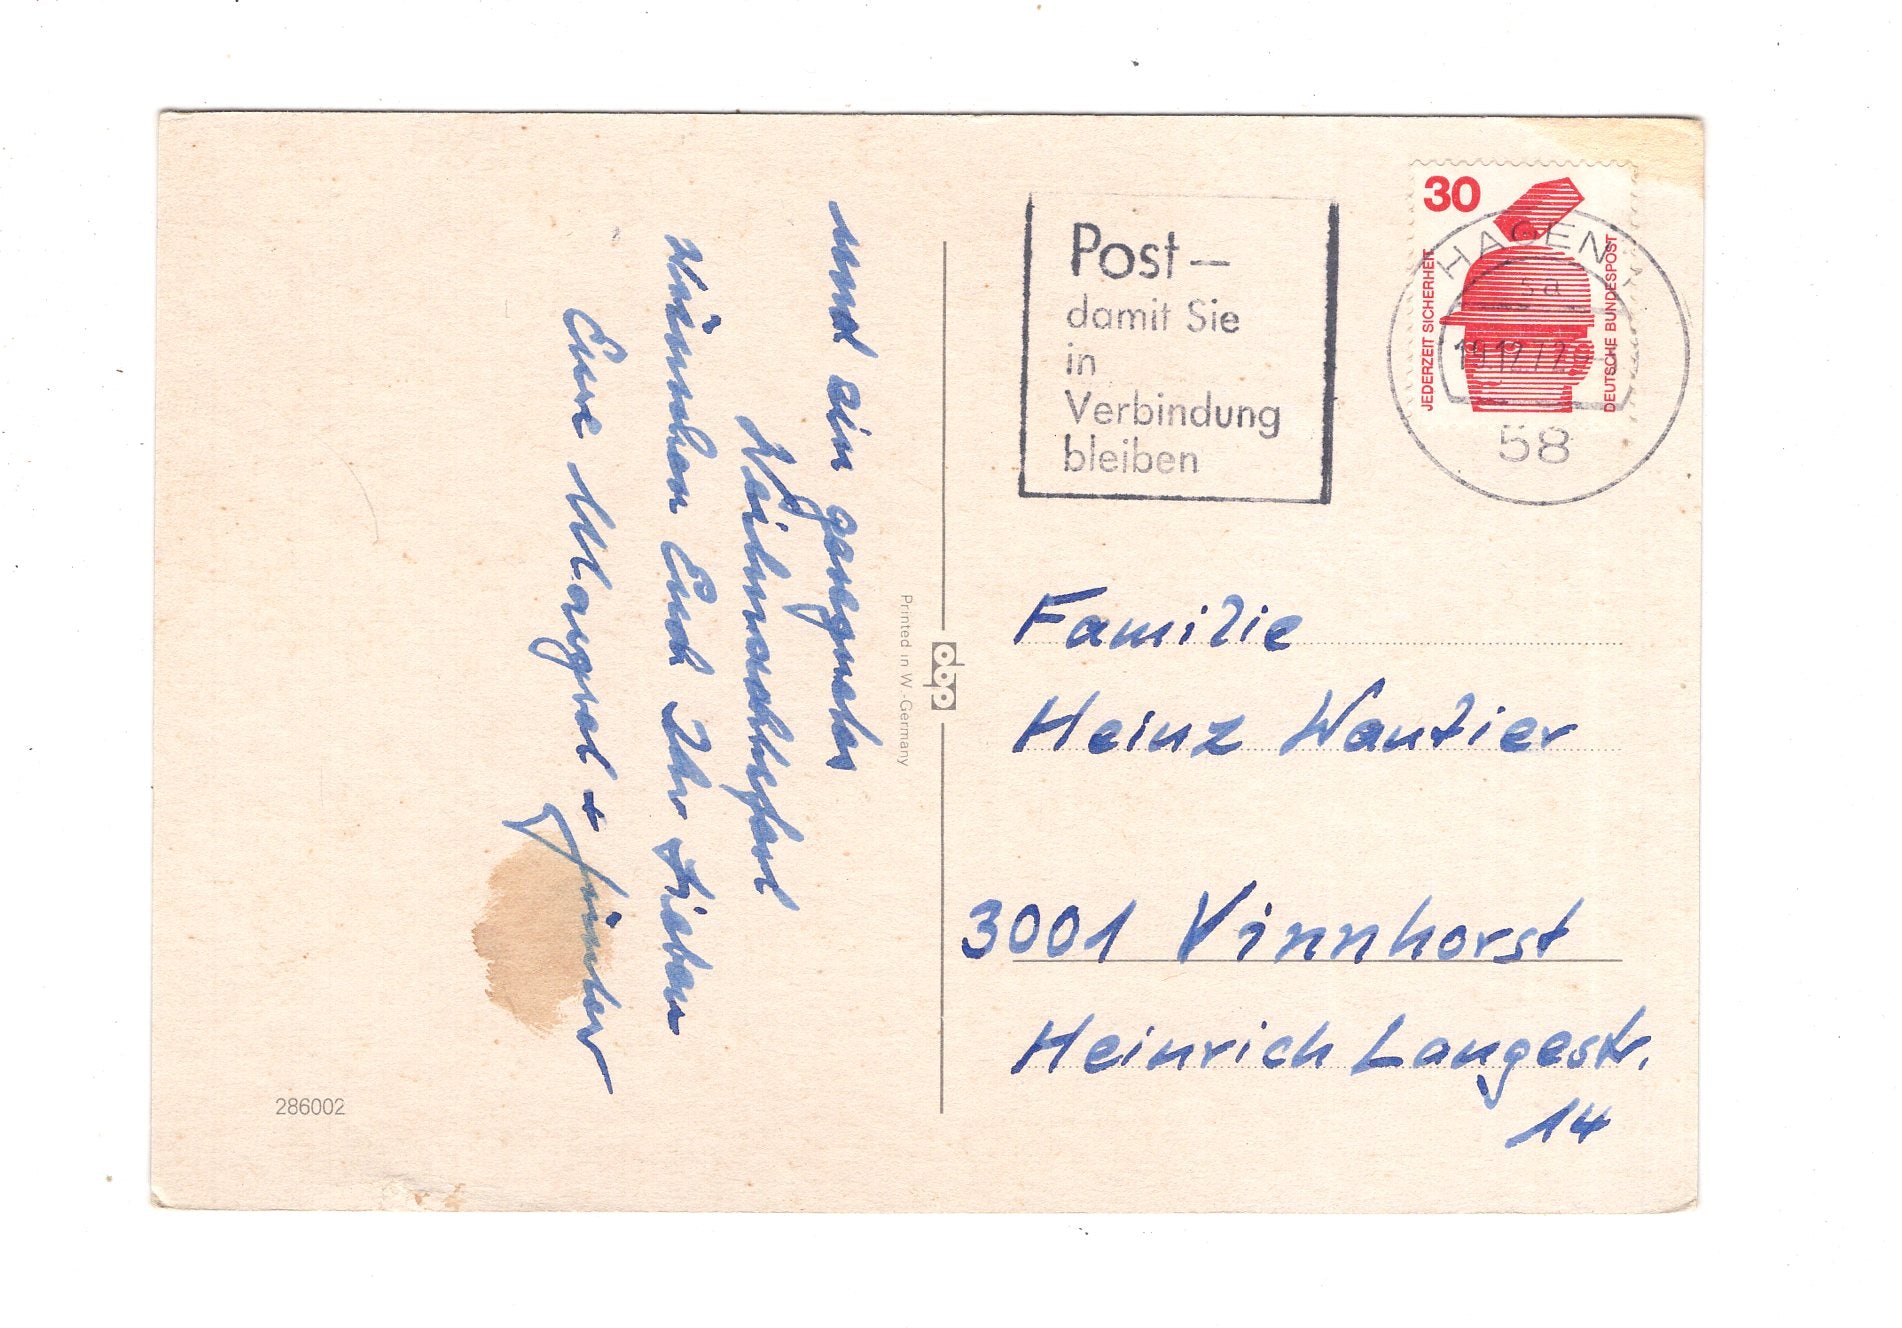 und ein gesegnetes
Weihnachtsfest
Wünschen Euch Ihr Lieben
Eure Margret + Günter
286002
Printed in W.-Germany
Post–
damit Sie
in
Verbindung
bleiben
30
JEDERZEIT SICHERHEIT
DEUTSCHE BUNDESPOST
HAGEN
19.12.72
58
Familie
Heinz Wautier
3001 Vinnhorst
Heinrich Langestr.
14